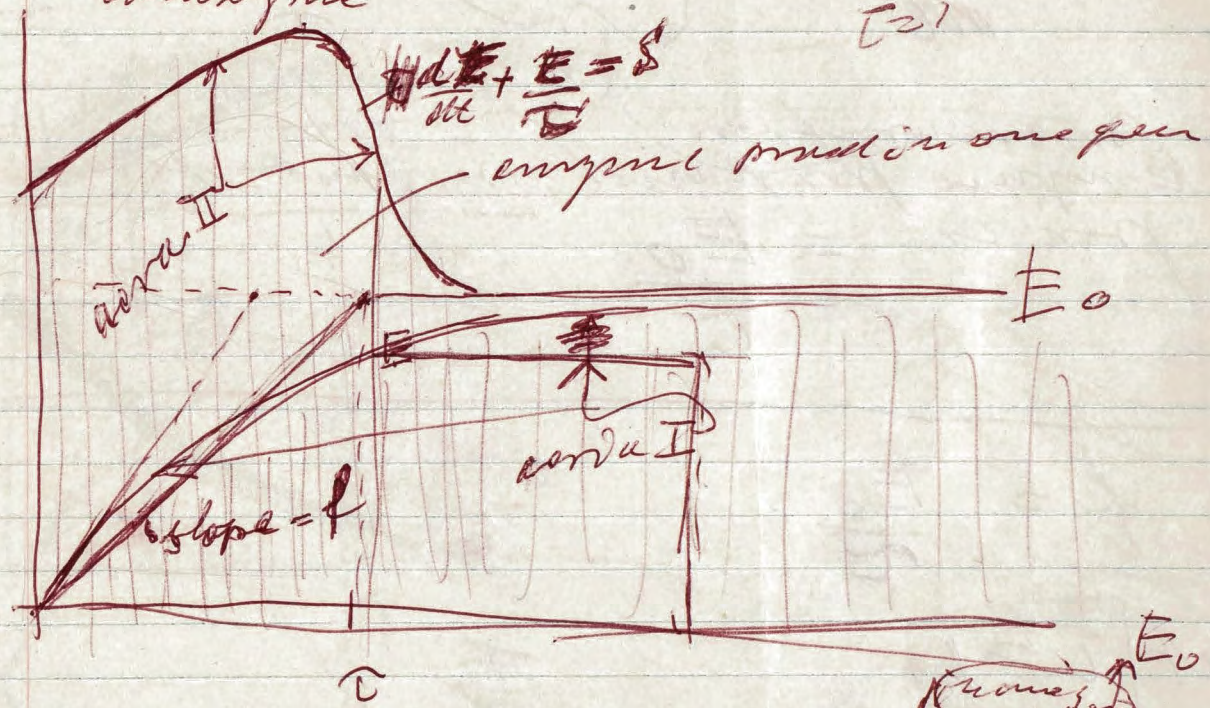 dE/dt + E/τ = S
enzyme prod in one gen
area II
E₀
area I
slope = f
τ
E₀